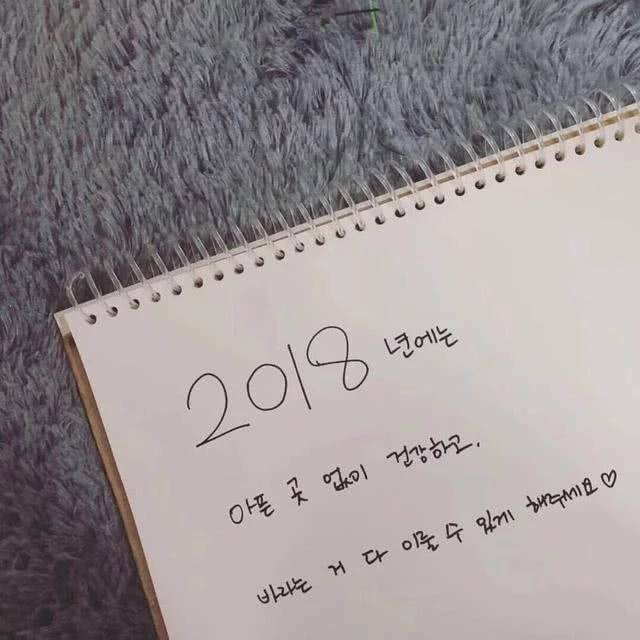 2018년에는
아픈 곳 없이 건강하고,
바라는 거 다 이룰 수 있게 해주세요♡